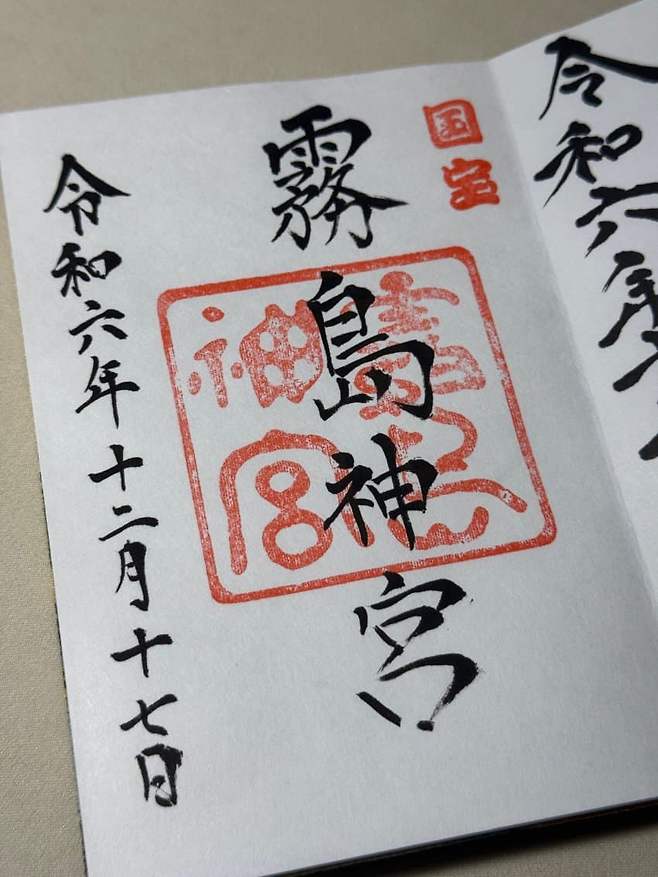 令和六年十二
国宝
霧島神宮
霧島神宮
令和六年十二月十七日